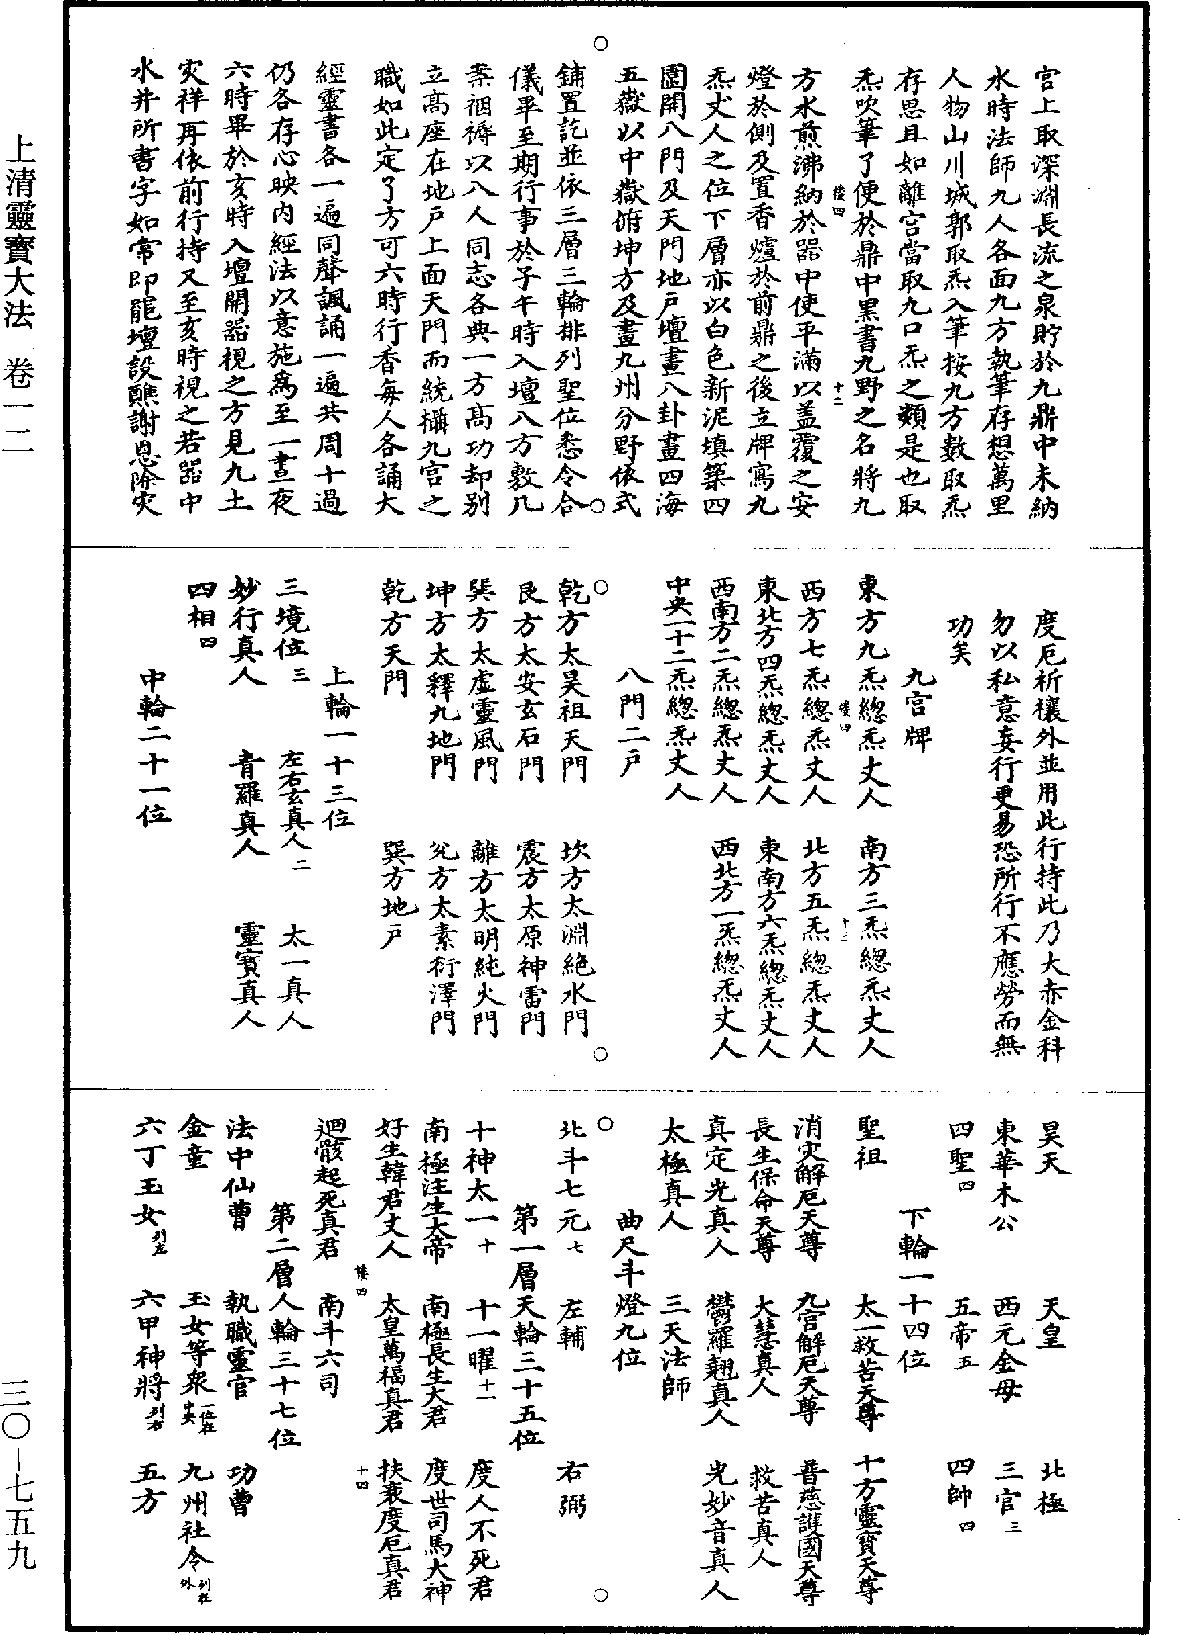 上清靈寶大法　卷一一
三〇—七五九
宫上取深淵長流之泉貯於九鼎中未納
水時法師九人各面九方執筆存想萬里
人物山川城郭取炁入筆按九方數取炁
存思且如離宫當取九口炁之類是也取
炁吹筆了便於鼎中黑書九野之名將九
方水煎沸納於器中使平滿以盖覆之安
燈於側及置香爐於前鼎之後立牌寫九
炁丈人之位下層亦以白色新泥填築四
圍開八門及天門地戸壇畫八卦畫四海
五嶽以中嶽俯坤方及畫九州分野依式
鋪置訖並依三層三輪排列聖位悉令合
儀畢至期行事於子午時入壇八方敷几
案裀褥以八人同志各典一方髙功却别
立髙座在地戸上面天門而統攝九宫之
職如此定了方可六時行香每人各誦大
經靈書各一遍同聲諷誦一遍共周十過
仍各存心映内經法以意施爲至一晝夜
六時畢於亥時入壇開器視之方見九土
灾祥再依前行持又至亥時視之若器中
水井所書字如常即罷壇設醮謝恩除灾
度厄祈禳外並用此行持此乃大赤金科
勿以私意妄行更易恐所行不應勞而無
功矣
九宫牌
東方九炁總炁丈人　南方三炁總炁丈人
西方七炁總炁丈人　北方五炁總炁丈人
東北方四炁總炁丈人　東南方六炁總炁丈人
西南方二炁總炁丈人　西北方一炁總炁丈人
中央一十二炁總炁丈人
八門二戸
乾方太昊祖天門　坎方太淵絶水門
艮方太安玄石門　震方太原神雷門
巽方太虚靈風門　離方太明純火門
坤方太釋九地門　兊方太素衍澤門
乾方天門　巽方地戸
上輪一十三位
三境位三　左右玄真人二　太一真人
妙行真人　青羅真人　靈寳真人
四相四
中輪二十一位
昊天　天皇　北極
東華木公　西元金母　三官三
四聖四　五帝五　四帥四
下輪一十四位
聖祖　太一救苦天尊　十方靈寳天尊
消灾解厄天尊　九宫解厄天尊　普慈護國天尊
長生保命天尊　大慧真人　救苦真人
真定光真人　鬱羅翹真人　光妙音真人
太極真人　三天法師
曲尺斗燈九位
北斗七元七　左輔　右弼
第一層天輪三十五位
十神太一十　十一曜十一　度人不死君
南極注生大帝　南極長生大君　度世司馬大神
好生韓君丈人　太皇萬福真君　扶衰度厄真君
迴骸起死真君　南斗六司
第二層人輪三十七位
法中仙曹　執職靈官　功曹
金童　玉女等衆一位在中央　九州社令列在外
六丁玉女列左　六甲神將列右　五方